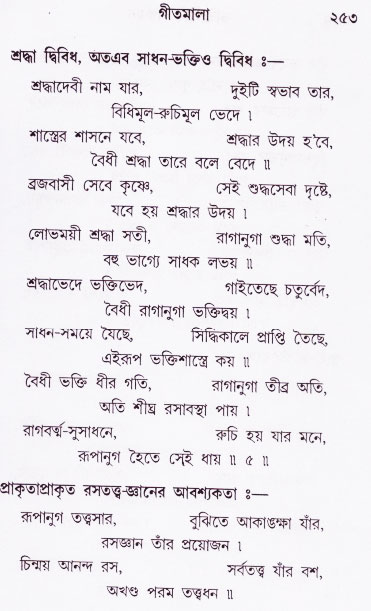 গীতমালা ২৫৩
শ্রদ্ধা দ্বিবিধ, অতএব সাধন-ভক্তিও দ্বিবিধ ঃ—
শ্রদ্ধাদেবী নাম যার, দুইটি স্বভাব তার,
বিধিমূল-রুচিমূল ভেদে ।
শাস্ত্রের শাসনে যবে, শ্রদ্ধার উদয় হ'বে,
বৈধী শ্রদ্ধা তারে বলে বেদে ॥
ব্রজবাসী সেবে কৃষ্ণে, সেই শুদ্ধসেবা দৃষ্টে,
যবে হয় শ্রদ্ধার উদয় ।
লোভময়ী শ্রদ্ধা সতী, রাগানুগা শুদ্ধা মতি,
বহু ভাগ্যে সাধক লভয় ॥
শ্রদ্ধাভেদে ভক্তিভেদ, গাইতেছে চতুর্বেদ,
বৈধী রাগানুগা ভক্তিদ্বয় ।
সাধন-সময়ে যৈছে, সিদ্ধিকালে প্রাপ্তি তৈছে,
এইরূপ ভক্তিশাস্ত্রে কয় ॥
বৈধী ভক্তি ধীর গতি, রাগানুগা তীব্র অতি,
অতি শীঘ্র রসাবস্থা পায় ।
রাগবর্ত্ম-সুসাধনে, রুচি হয় যার মনে,
রূপানুগ হৈতে সেই ধায় ॥ ৫ ॥
প্রাকৃতাপ্রাকৃত রসতত্ত্ব-জ্ঞানের আবশ্যকতা ঃ—
রূপানুগ তত্ত্বসার, বুঝিতে আকাঙক্ষা যাঁর,
রসজ্ঞান তাঁর প্রয়োজন ।
চিন্ময় আনন্দ রস, সর্বতত্ত্ব যাঁর বশ,
অখণ্ড পরম তত্ত্বধন ॥